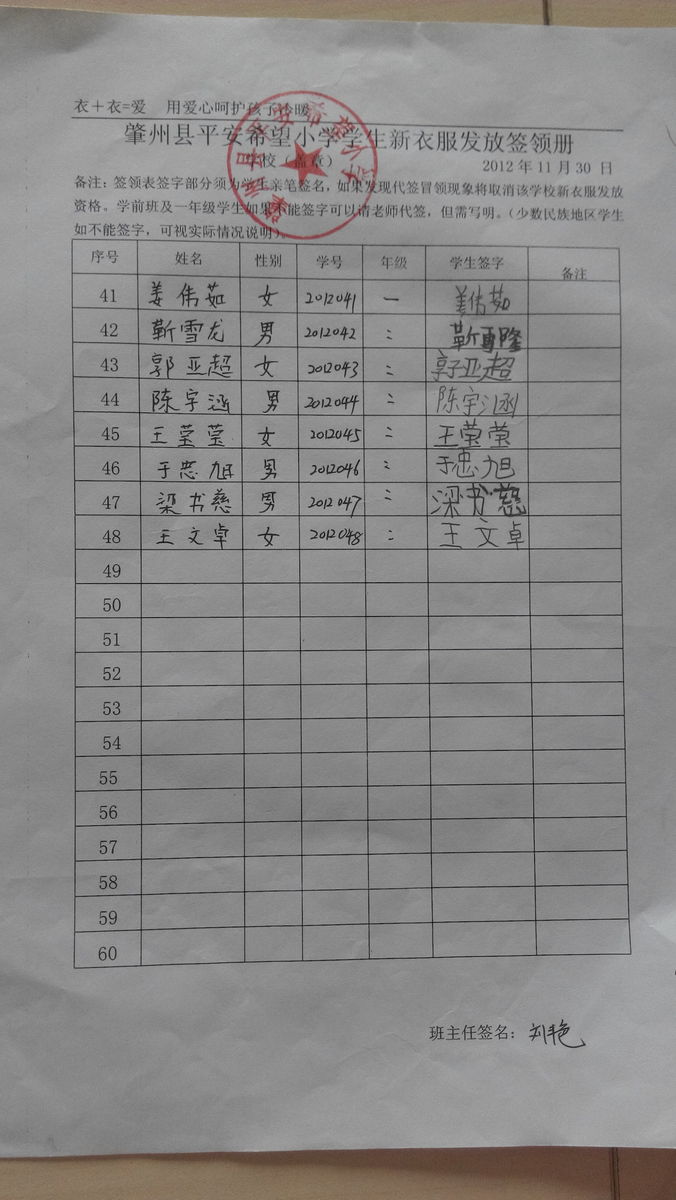 衣+衣=爱 用爱心呵护孩子冷暖
肇州县平安希望小学学生新衣服发放签领册
学校（盖章） 2012年11月30日
备注：签领表签字部分须为学生亲笔签名，如果发现代签冒领现象将取消该学校新衣服发放
资格。学前班及一年级学生如果不能签字可以请老师代签，但需写明。（少数民族地区学生
如不能签字，可视实际情况说明）。
序号 姓名 性别 学号 年级 学生签字 备注
41 姜伟茹 女 2012041 一 姜伟茹
42 靳雪龙 男 2012042 二 靳雪隆
43 郭亚超 女 2012043 二 郭亚超
44 陈宇涵 男 2012044 二 陈宇涵
45 王莹莹 女 2012045 二 王莹莹
46 于忠旭 男 2012046 二 于忠旭
47 梁书慈 男 2012047 二 梁书慈
48 王文卓 女 2012048 二 王文卓
49
50
51
52
53
54
55
56
57
58
59
60
班主任签名：刘艳